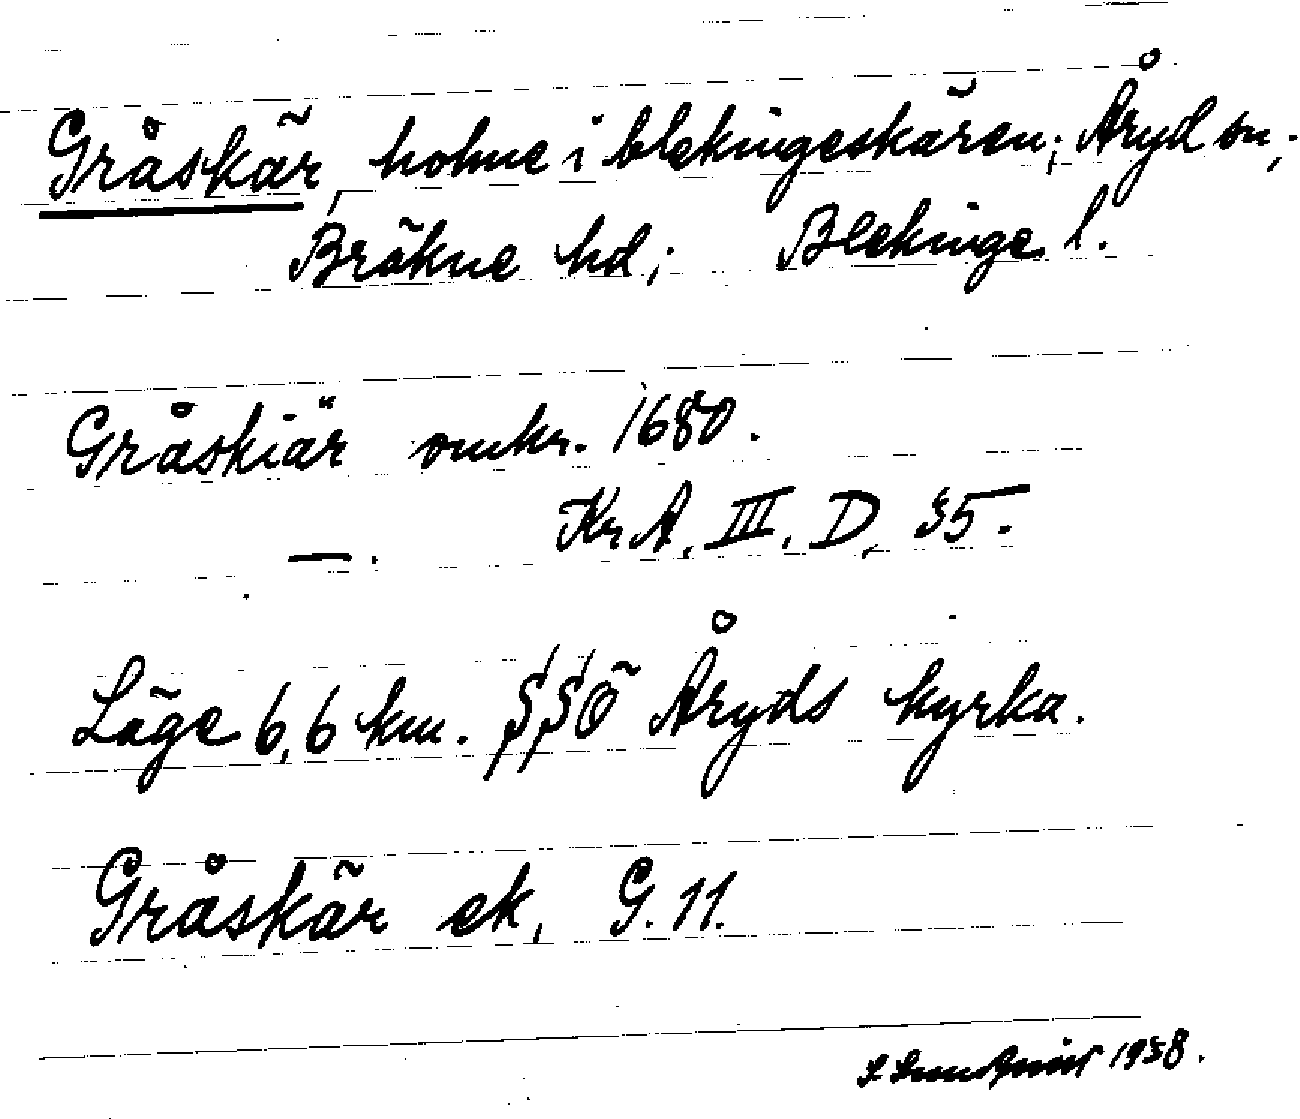 Gråskär, holme i blekingeskären; Åryd sn;
Bräkne hd; Blekinge l.
Gråskiär omkr. 1680.
—. KrA, III, D, 35.
Läge 6,6 km. SSÖ Åryds kyrka.
Gråskär ek, G. 11.
1938.